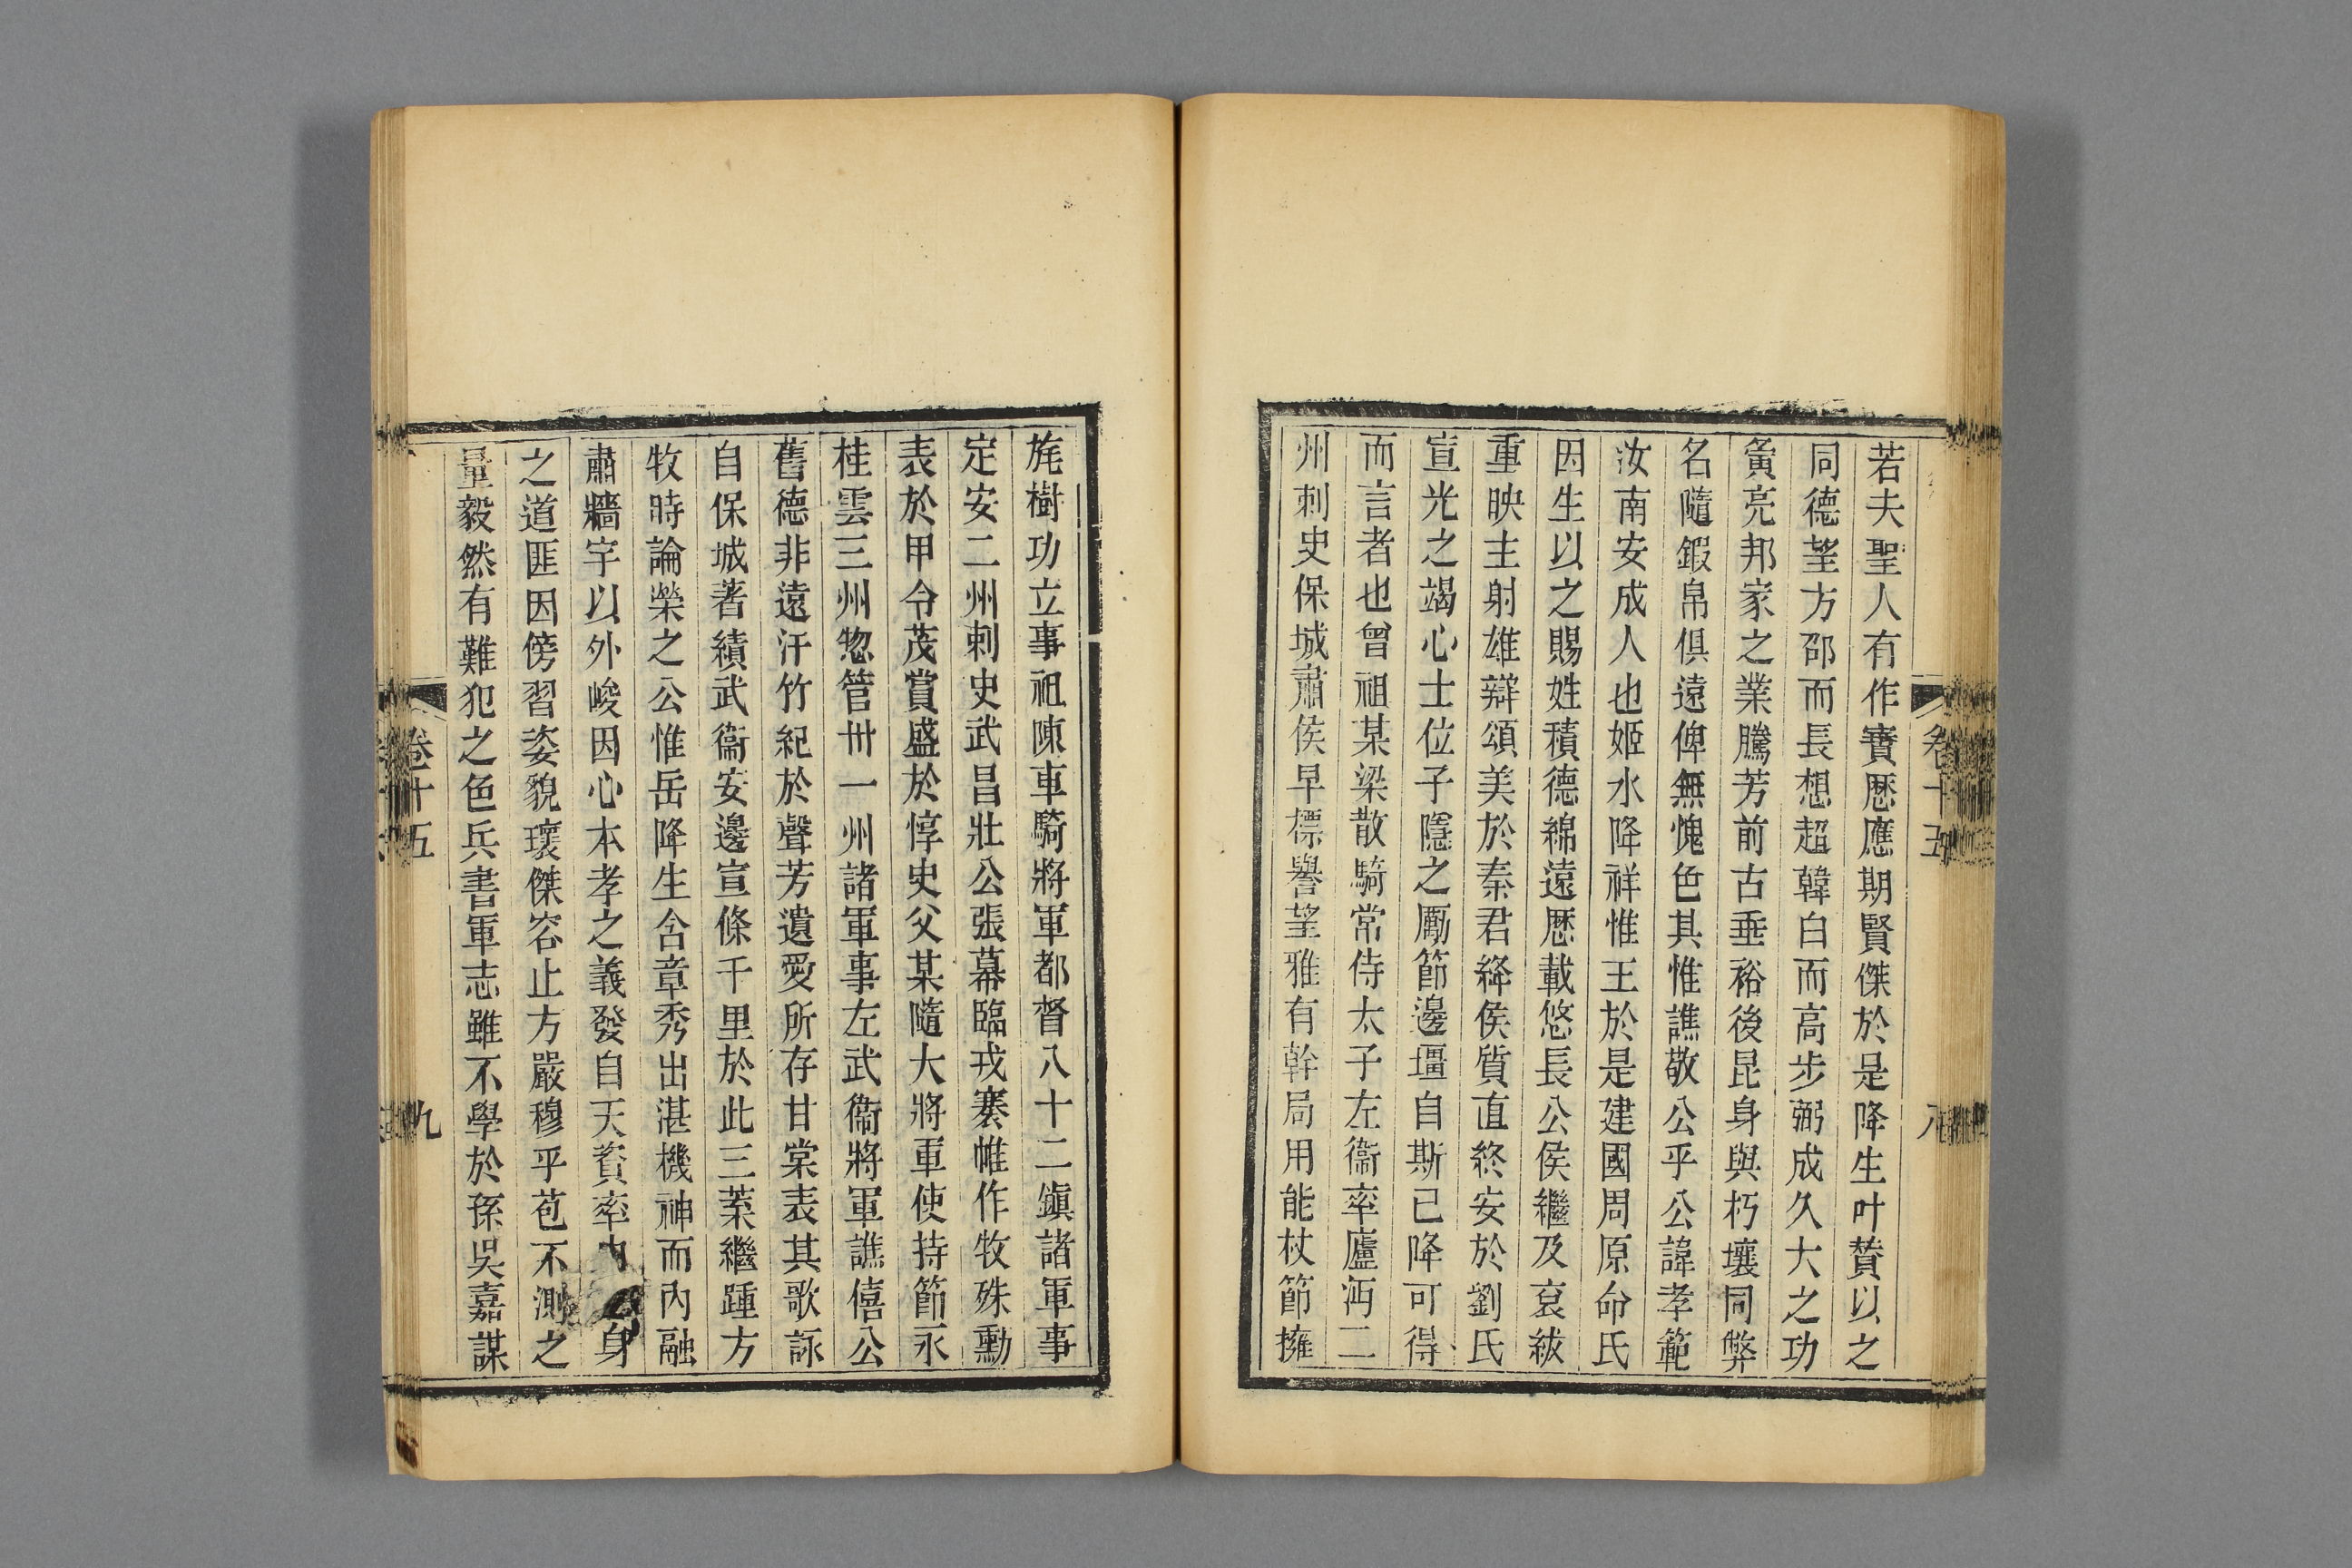 若夫聖人有作寶歴應期賢傑於是降生叶賛以之
同德望方邵而長想超韓白而高步弼成久大之功
寅亮邦家之業騰芳前古垂裕後昆身與朽壤同弊
名隨鍜帛俱遠俾無愧色其惟譙敬公乎公諱孝範
汝南安成人也姬水降祥惟王於是建國周原命氏
因生以之賜姓積德綿遠歴載悠長公侯繼及袞紱
重映主射雄辯頌美於秦君絳侯質直終安於劉氏
宣光之竭心士位子隱之勵節邊壃自斯已降可得
而言者也曾祖某梁散騎常侍太子左衞率廬沔二
州刺史保城肅侯早標譽望雅有幹局用能杖節擁
卷十五
八
旄樹功立事祖陳車騎將軍都督八十二鎭諸軍事
定安二州刺史武昌壯公張幕臨戎褰帷作牧殊勳
表於甲令茂賞盛於惇史父某隨大將軍使持節永
桂雲三州惣管卅一州諸軍事左武衞將軍譙僖公
舊德非遠汗竹紀於聲芳遺愛所存甘棠表其歌詠
自保城著績武衞安邊宣條千里於此三葉繼踵方
牧時論榮之公惟岳降生含章秀出湛機神而內融
肅牆宇以外峻因心本孝之義發自天資率身
之道匪因傍習姿貌瓌傑容止方嚴穆乎苞不測之
量毅然有難犯之色兵書軍志雖不學於孫吳嘉謀
卷十五
九